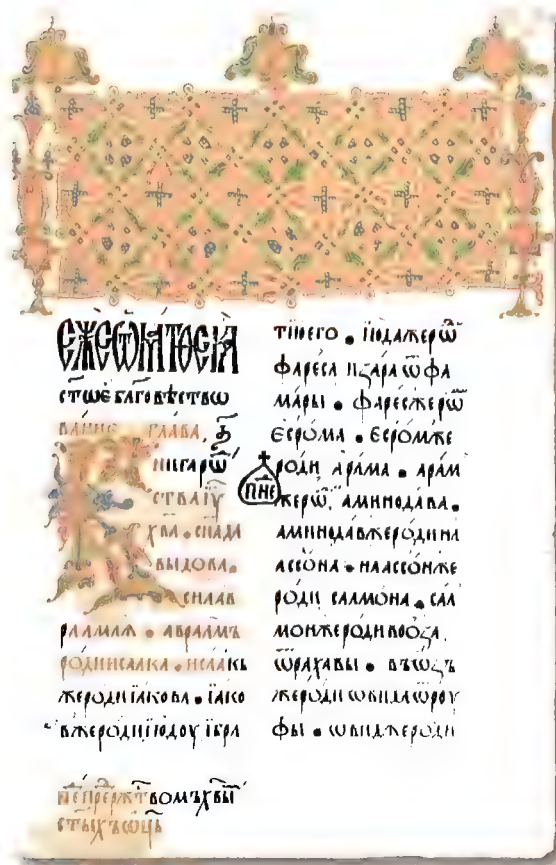 ЕЖЕ ѾМАТѲЕꙖ
ст҃ое бл҃говѣство
ванїе глава, а҃
Книга рѡ
ства їѵ
х҃ва . сн҃ада
выдова .
сн҃а ав
раамлѧ . авраамъ
роди исаака . исаакъ
же роди їакова . їако
в же роди їюдоу ї бра
тїю его . їюда же рѡ
фареса и зара ѿ фа
мары . фарес же рѡ
есрома . есром же
роди арама . арам
же рѡ. аминодава .
аминодав же роди на
ассона . наассон же
роди салмона . сал
мон же роди вооза
ѿ рахавы . въѡзъ
же роди ѡвида ѿ роу
фы . ѡвид же роди